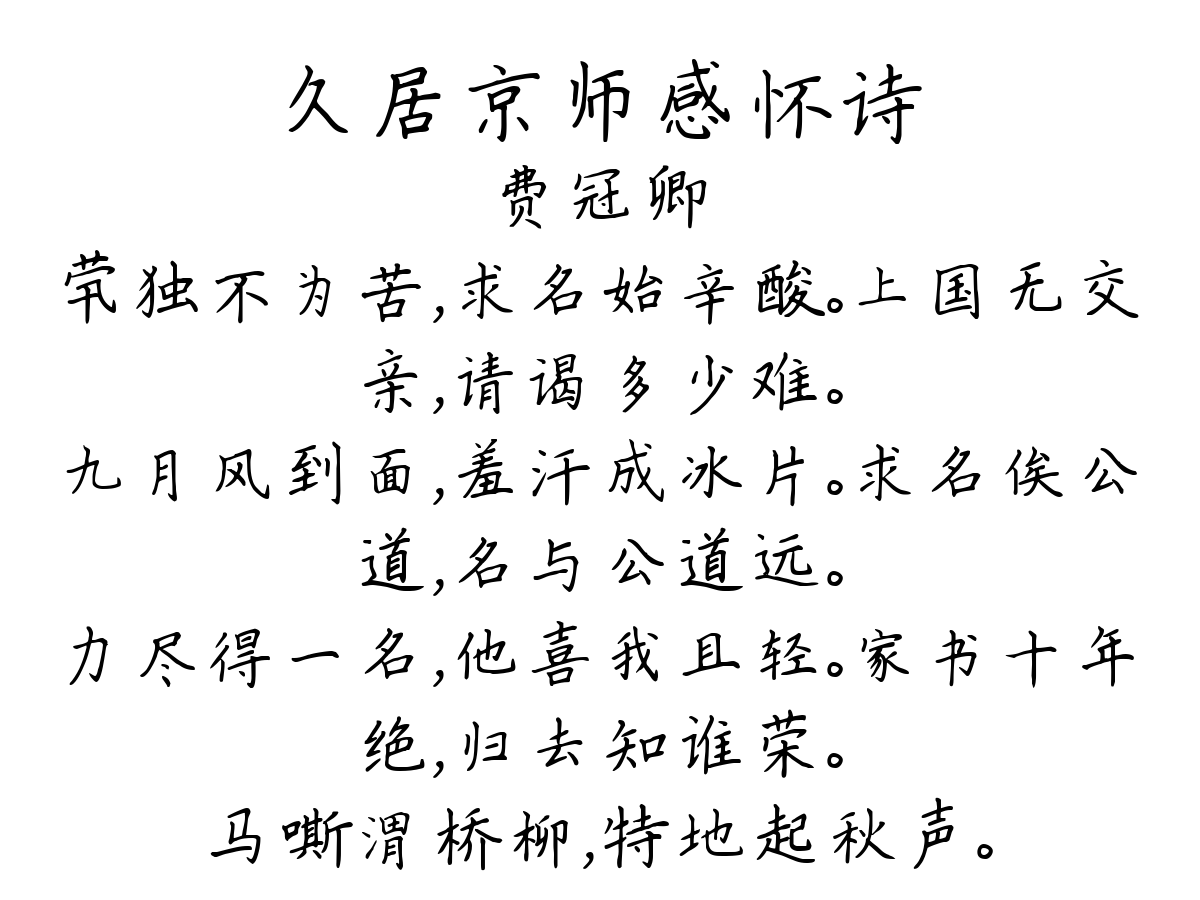 久居京师感怀诗
费冠卿
茕独不为苦,求名始辛酸。上国无交
亲,请谒多少难。
九月风到面,羞汗成冰片。求名俟公
道,名与公道远。
力尽得一名,他喜我且轻。家书十年
绝,归去知谁荣。
马嘶渭桥柳,特地起秋声。